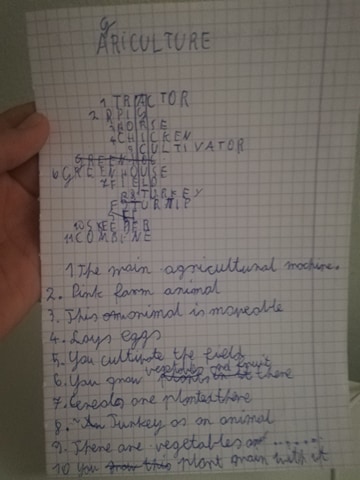 g
ARICULTURE
1 TRACTOR
2 PIG
3 HORSE
4 CHICKEN
5 CULTIVATOR
6 GREENHOUSE
7 FIELD
8 TURKEY
9 TURNIP
10 SEEDER
11 COMBINE
1 The main agricultural machine.
2. Pink farm animal
3. This animal is moveable
4. Lays eggs
5. You cultivate the field
vegetables and fruit
6. You grow there
7. Cereals are planted there
8. An Turkey as an animal
9. There are vegetables or ......
10 You plant grain with it